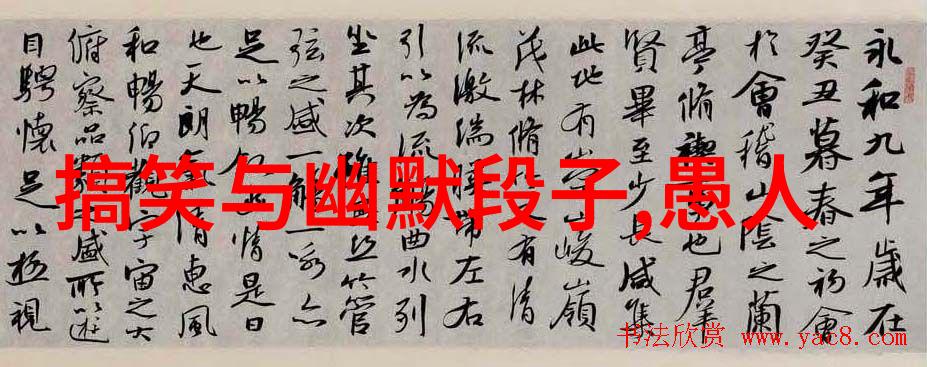 永和九年歲在
癸丑暮春之初會
於會稽山陰之蘭
亭脩也羣
賢畢至少長咸集
此地有山峻嶺
茂林脩又有清
流激湍帶左右
引以為流曲水列
坐其次竹管
弦之盛一一詠亦
足以暢情是日
也天朗氣清惠風
和暢仰觀宇宙之大
俯察品類盛所以遊
目騁懷足以極視
搞笑与幽默段子,愚人
书法欣赏 www.yac8.com